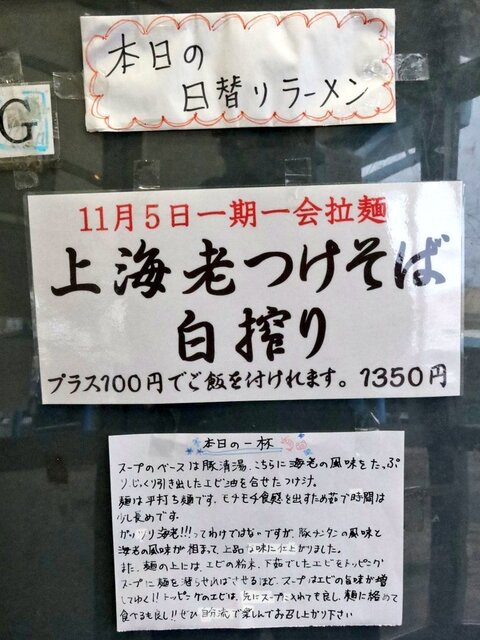 本日の
日替りラーメン
G
11月5日一期一会拉麺
上海老つけそば
白搾り
プラス100円でご飯を付けれます。1350円
本日の一杯
スープのベースは豚清湯、こちらに海老の風味をたっぷ
りじっくり引き出したエビ油を合せたつけ汁。
麺は平打ち麺です。モチモチ食感を出すため茹で時間は
少し長めです。
ガッツリ海老!!!ってわけではないですが、豚チンタンの風味と
海老の風味が相まって、上品な味に仕上がりました。
また、麺の上には、エビの粉末、下茹でしたエビをトッピング
スープに麺を潜らせればさせるほど、スープはエビの旨味が増
してゆく!!トッピングのエビは、先にスープに入れても良し、麺に絡めて
食べるも良し!!ぜひ自分流で楽しんでお召し上がり下さい